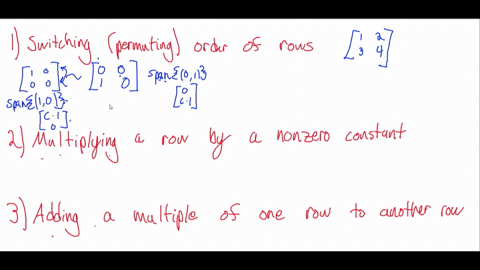 1) Switching (permuting) order of rows [1 2
3 4]
[1 0
0 0] [0 0
1 0] span{(0,1)}
span{(1,0)} [0
c·1]
[c·1
0]
2) Multiplying a row by a nonzero constant
3) Adding a multiple of one row to another row